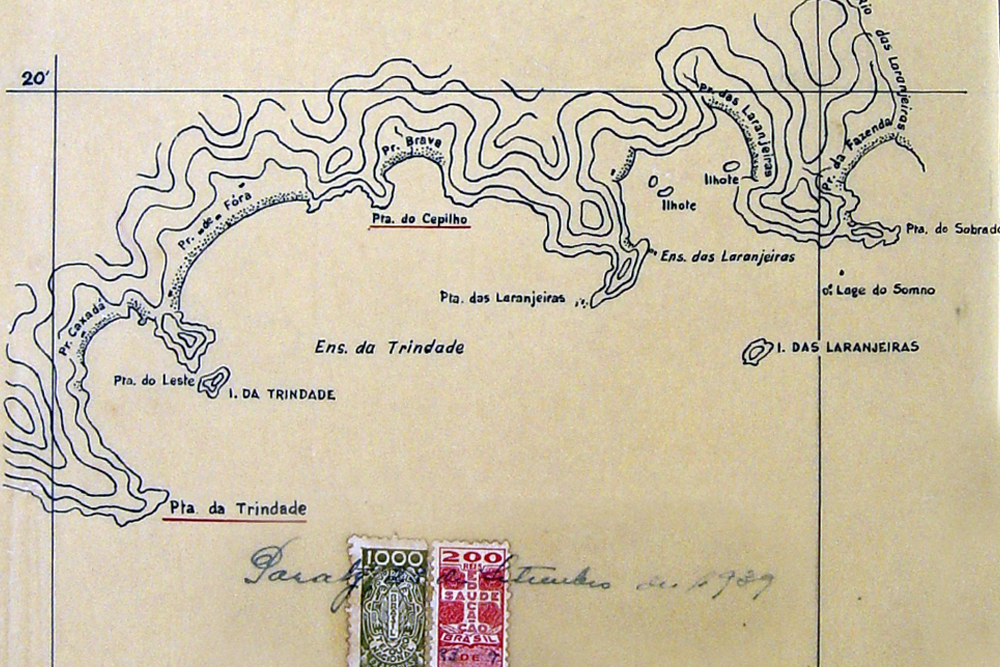 20'
Rio das Laranjeiras
Pr. das Laranjeiras
Pr. da Fazenda
Pr. Brava
Ilhote
Ilhote
Pr. de Fóra
Pta. do Cepilho
Pta. do Sobrado
Ens. das Laranjeiras
Lage do Somno
Pta. das Laranjeiras
Pr. Caxada
Ens. da Trindade
I. DAS LARANJEIRAS
Pta. do Leste
I. DA TRINDADE
Pta. da Trindade
1.000
BRASIL
200
RÉIS
EDUCAÇÃO
SAUDE
BRASIL
Paraty de Setembro de 1939